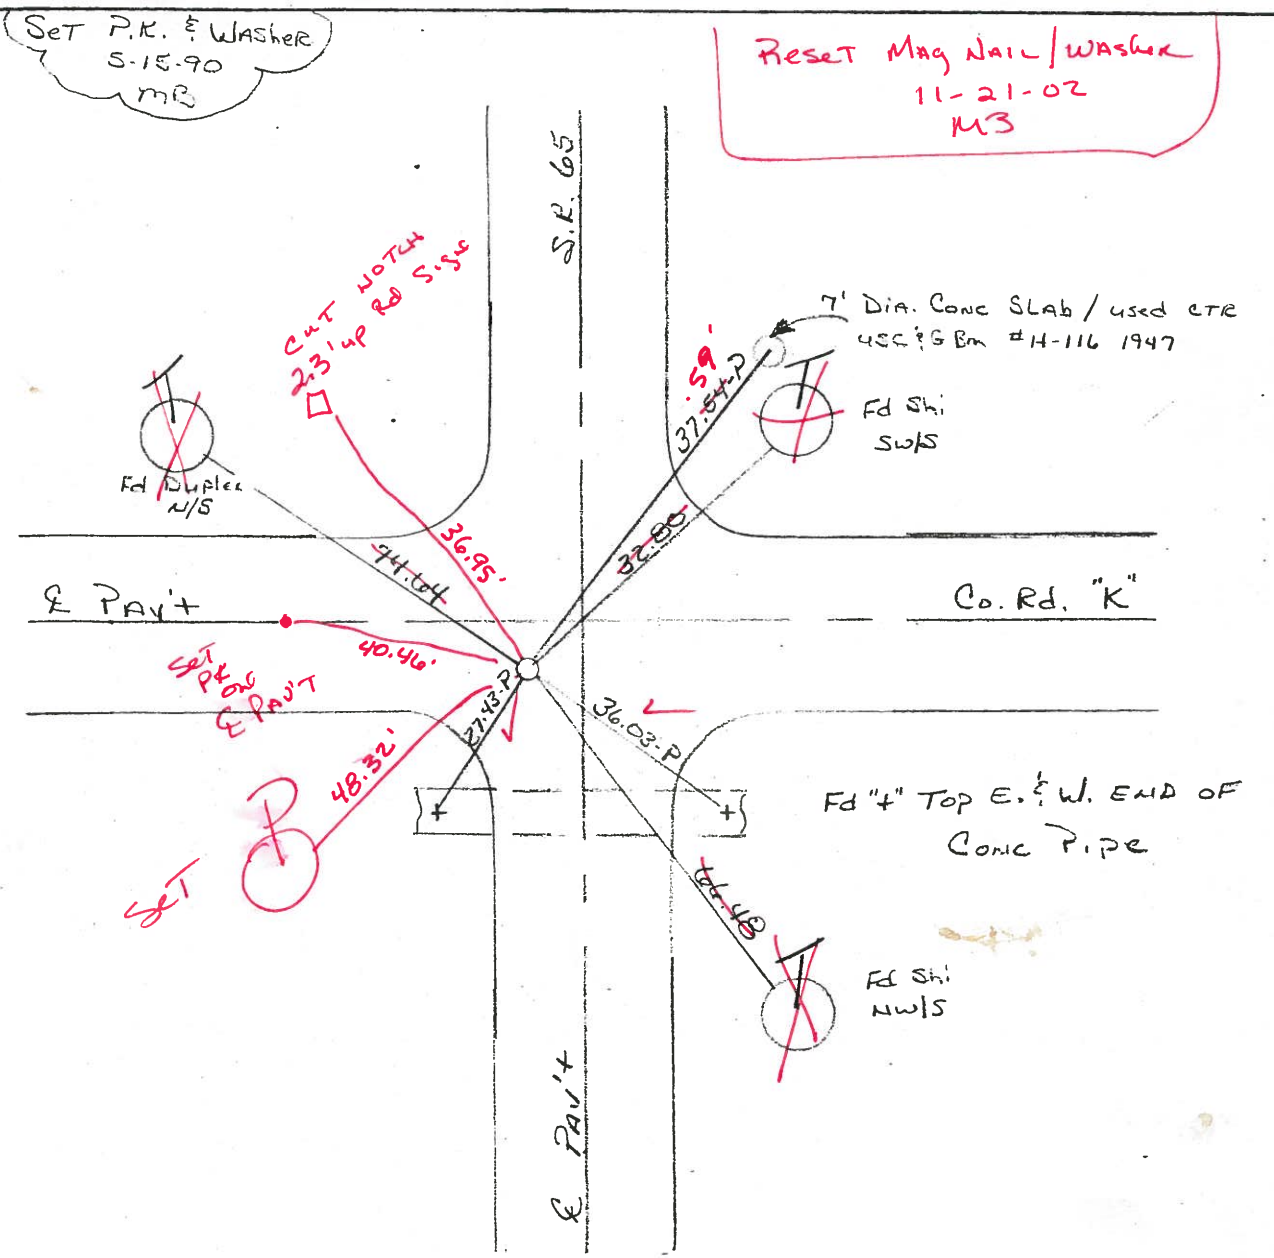 SET P.K. & WASHER
5-15-90
MB
RESET MAG NAIL/WASHER
11-21-02
MB
S.R. 65
CUT NOTCH
2.3' up Rd Sign
7' DIA. CONC SLAB / used CTR
USC & G Bm #H-116 1947
.59'
37.54-P
Fd Shi
SW/S
Fd Duplex
N/S
36.95'
32.80
94.64
℄ PAV'T
Co. Rd. "K"
40.46'
SET
PK ON
℄ PAV'T
27.43-P
36.03-P
48.32'
P
SET
Fd "+" TOP E. & W. END OF
CONC PIPE
66.48
Fd Shi
NW/S
℄ PAV'T